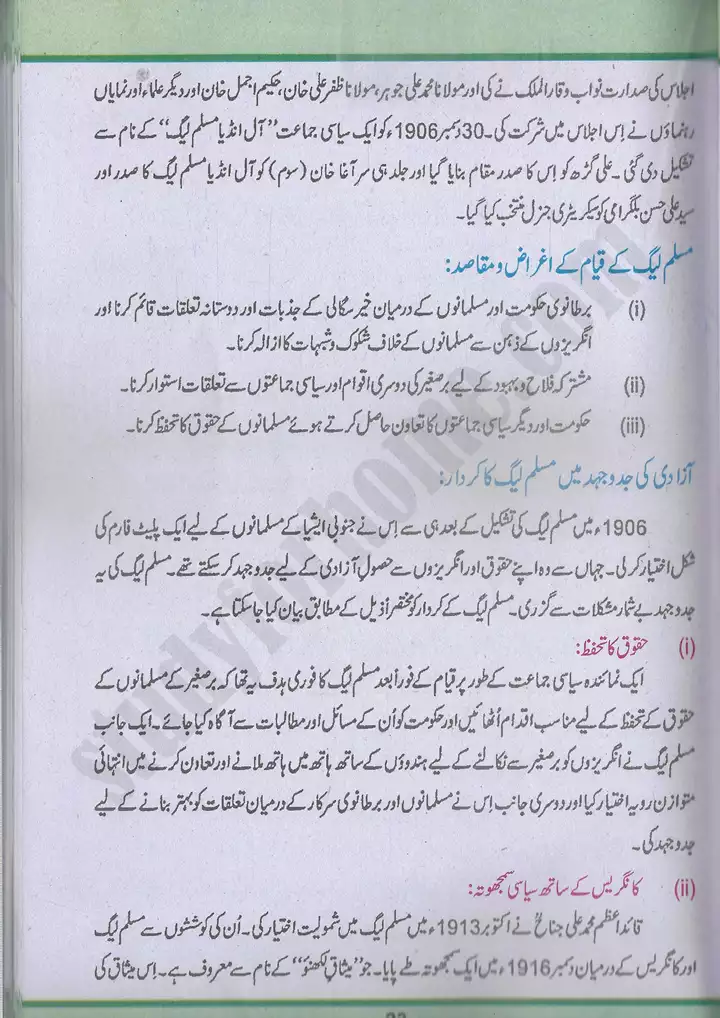 اجلاس کی صدارت نواب وقار الملک نے کی اور مولانا محمد علی جوہر، مولانا ظفر علی خان، حکیم اجمل خان اور دیگر علماء اور نمایاں
رہنماؤں نے اِس اجلاس میں شرکت کی۔ 30 دسمبر 1906ء کو ایک سیاسی جماعت ”آل انڈیا مسلم لیگ“ کے نام سے
تشکیل دی گئی۔ علی گڑھ کو اِس کا صدر مقام بنایا گیا اور جلد ہی سر آغا خان (سوم) کو آل انڈیا مسلم لیگ کا صدر اور
سید علی حسن بلگرامی کو سیکریٹری جنرل منتخب کیا گیا۔
مسلم لیگ کے قیام کے اغراض و مقاصد:
(i) برطانوی حکومت اور مسلمانوں کے درمیان خیر سگالی کے جذبات اور دوستانہ تعلقات قائم کرنا اور
انگریزوں کے ذہن سے مسلمانوں کے خلاف شکوک و شبہات کا ازالہ کرنا۔
(ii) مشترکہ فلاح و بہبود کے لیے برصغیر کی دوسری اقوام اور سیاسی جماعتوں سے تعلقات استوار کرنا۔
(iii) حکومت اور دیگر سیاسی جماعتوں کا تعاون حاصل کرتے ہوئے مسلمانوں کے حقوق کا تحفظ کرنا۔
آزادی کی جدوجہد میں مسلم لیگ کا کردار:
1906ء میں مسلم لیگ کی تشکیل کے بعد ہی سے اِس نے جنوبی ایشیا کے مسلمانوں کے لیے ایک پلیٹ فارم کی
شکل اختیار کر لی۔ جہاں سے وہ اپنے حقوق اور انگریزوں سے حصولِ آزادی کے لیے جدوجہد کر سکتے تھے۔ مسلم لیگ کی یہ
جدوجہد بے شمار مشکلات سے گزری۔ مسلم لیگ کے کردار کو مختصراً ذیل کے مطابق بیان کیا جا سکتا ہے۔
(i) حقوق کا تحفظ:
ایک نمائندہ سیاسی جماعت کے طور پر قیام کے فوراً بعد مسلم لیگ کا فوری ہدف یہ تھا کہ برصغیر کے مسلمانوں کے
حقوق کے تحفظ کے لیے مناسب اقدام اُٹھائیں اور حکومت کو اُن کے مسائل اور مطالبات سے آگاہ کیا جائے۔ ایک جانب
مسلم لیگ نے انگریزوں کو برصغیر سے نکالنے کے لیے ہندوؤں کے ساتھ ہاتھ میں ہاتھ ملانے اور تعاون کرنے میں انتہائی
متوازن رویہ اختیار کیا اور دوسری جانب اِس نے مسلمانوں اور برطانوی سرکار کے درمیان تعلقات کو بہتر بنانے کے لیے
جدوجہد کی۔
(ii) کانگریس کے ساتھ سیاسی سمجھوتہ:
قائد اعظم محمد علی جناحؒ نے اکتوبر 1913ء میں مسلم لیگ میں شمولیت اختیار کی۔ اُن کی کوششوں سے مسلم لیگ
اور کانگریس کے درمیان دسمبر 1916ء میں ایک سمجھوتہ طے پایا۔ جو ”میثاقِ لکھنؤ“ کے نام سے معروف ہے۔ اِس میثاق کی